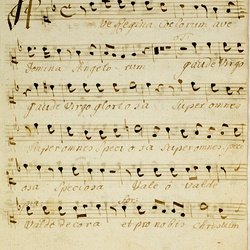 Ave Regina coelorum ave
Domina Angelorum gaude Virgo
gaude Virgo gloriosa Super omnes
Super omnes Speciosa Super omnes speci
osa Speciosa Vale o valde
Valde decora et pro nobis Christum